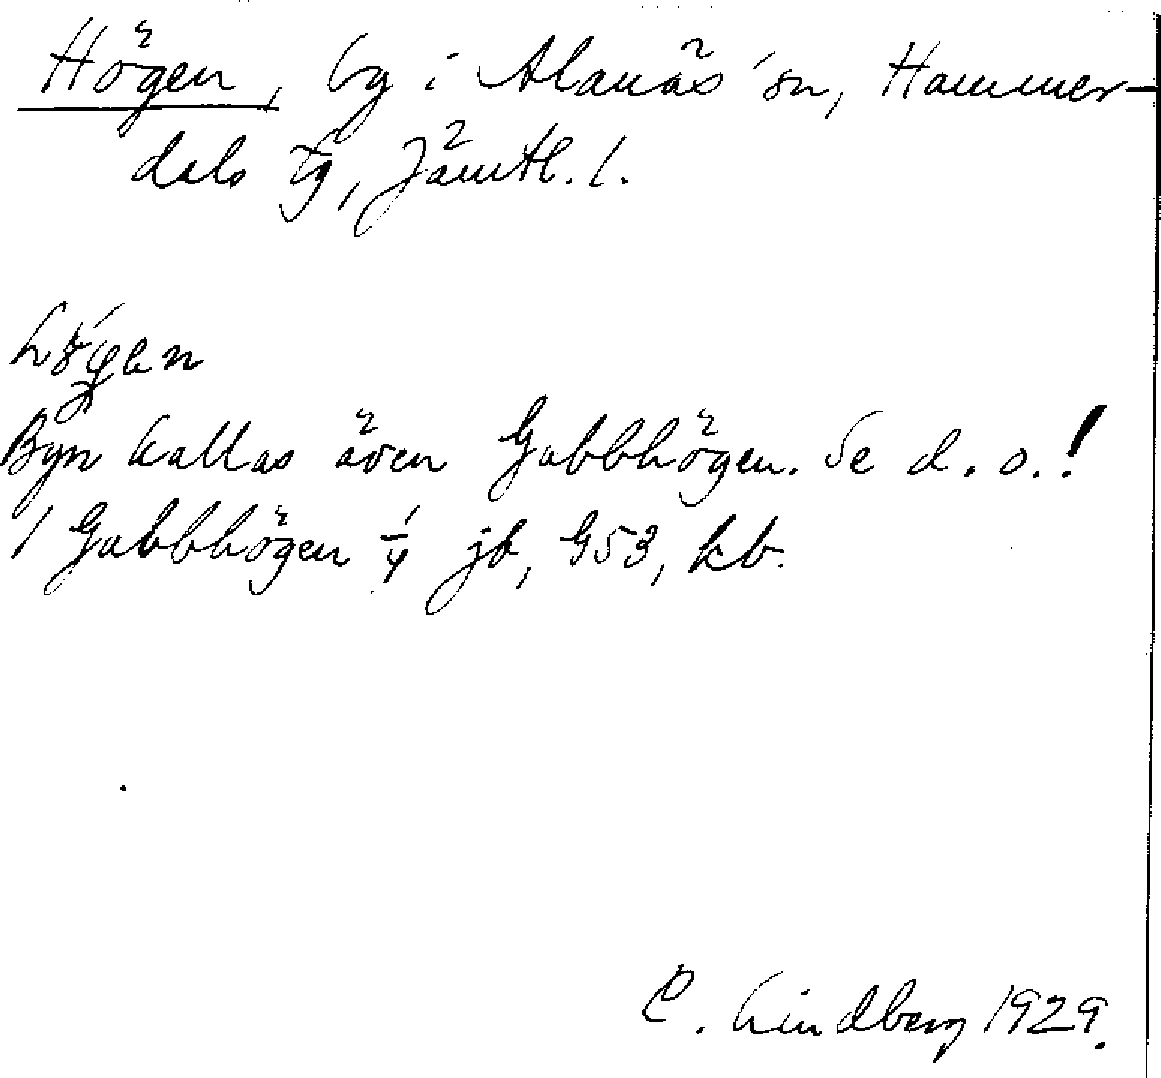 Högen, by i Alanäs sn, Hammer-
dals tg, Jämtl. l.
Byn kallas även Gubbhögen. Se d. o.!
1 Gubbhögen 1/4 jb, G53, kb.
C. Lindberg 1929.